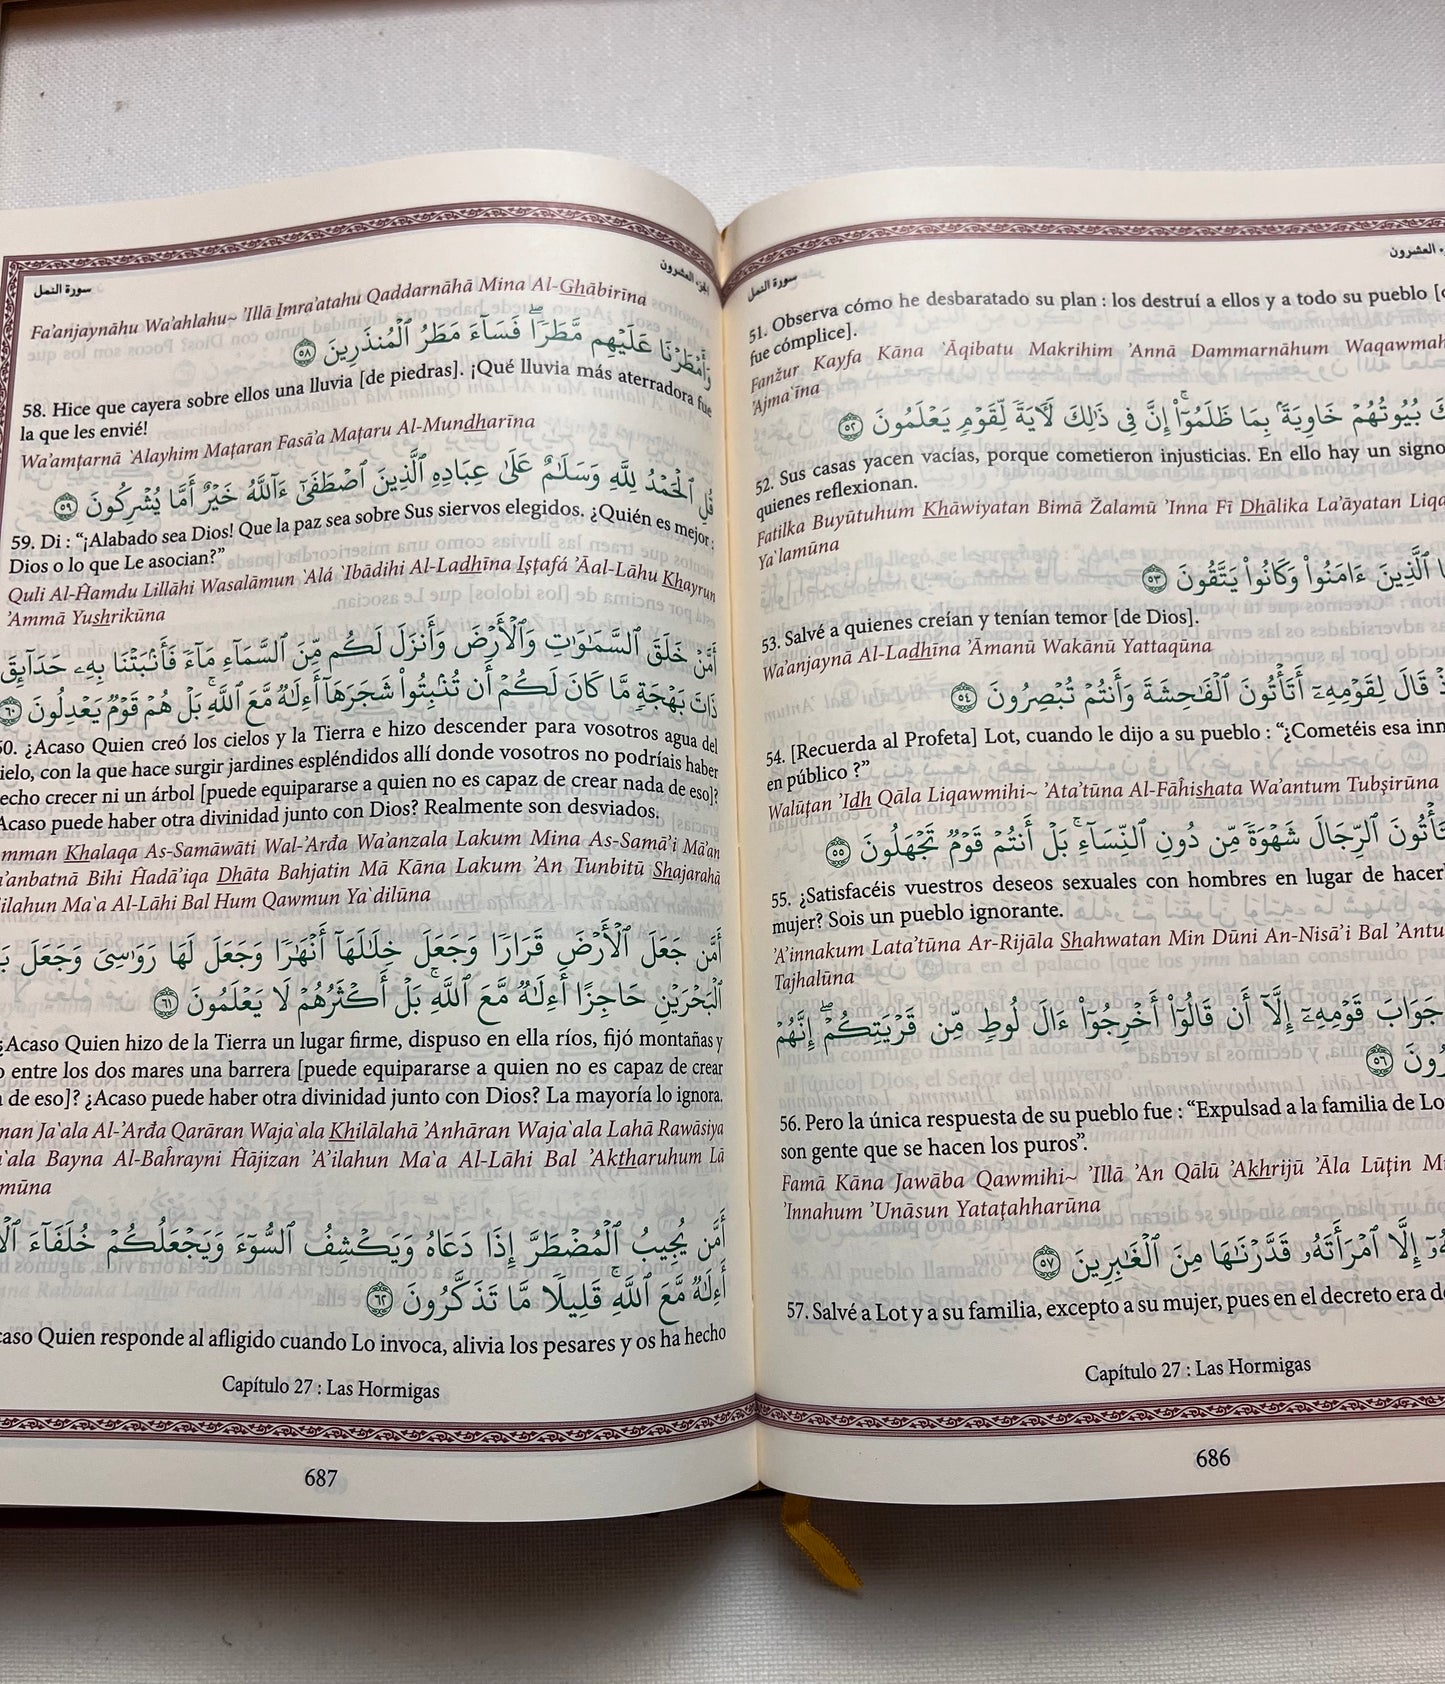 سورة النمل
الجزء العشرون
51. Observa cómo he desbaratado su plan : los destruí a ellos y a todo su pueblo
fue cómplice].
Fanžur Kayfa Kāna `Āqibatu Makrihim 'Annā Dammarnāhum Waqawmah
'Ajma`īna
بُيُوتُهُمْ خَاوِيَةً بِمَا ظَلَمُوٓا۟ إِنَّ فِى ذَٰلِكَ لَـَٔايَةً لِّقَوْمٍ يَعْلَمُونَ ٥٢
52. Sus casas yacen vacías, porque cometieron injusticias. En ello hay un signo
quienes reflexionan.
Fatilka Buyūtuhum Khāwiyatan Bimā Žalamū 'Inna Fī Dhālika La'āyatan Liqa
Ya`lamūna
ٱلَّذِينَ ءَامَنُوا۟ وَكَانُوا۟ يَتَّقُونَ ٥٣
53. Salvé a quienes creían y tenían temor [de Dios].
Wa'anjaynā Al-Ladhīna 'Āmanū Wakānū Yattaqūna
قَالَ لِقَوْمِهِۦٓ أَتَأْتُونَ ٱلْفَـٰحِشَةَ وَأَنتُمْ تُبْصِرُونَ ٥٤
54. [Recuerda al Profeta] Lot, cuando le dijo a su pueblo : “¿Cometéis esa inm
en público ?”
Walūţan 'Idh Qāla Liqawmihi~ 'Ata'tūna Al-Fāĥishata Wa'antum Tubşirūna
تَأْتُونَ ٱلرِّجَالَ شَهْوَةً مِّن دُونِ ٱلنِّسَآءِ ۚ بَلْ أَنتُمْ قَوْمٌ تَجْهَلُونَ ٥٥
55. ¿Satisfacéis vuestros deseos sexuales con hombres en lugar de hacerl
mujer? Sois un pueblo ignorante.
'A'innakum Lata'tūna Ar-Rijāla Shahwatan Min Dūni An-Nisā'i Bal 'Antu
Tajhalūna
جَوَابَ قَوْمِهِۦٓ إِلَّآ أَن قَالُوٓا۟ أَخْرِجُوٓا۟ ءَالَ لُوطٍ مِّن قَرْيَتِكُمْ ۖ إِنَّهُمْ
رُونَ ٥٦
56. Pero la única respuesta de su pueblo fue : “Expulsad a la familia de Lo
son gente que se hacen los puros”.
Famā Kāna Jawāba Qawmihi~ 'Illā 'An Qālū 'Akhrijū 'Āla Lūţin Mi
'Innahum 'Unāsun Yataţahharūna
إِلَّا ٱمْرَأَتَهُۥ قَدَّرْنَـٰهَا مِنَ ٱلْغَـٰبِرِينَ ٥٧
57. Salvé a Lot y a su familia, excepto a su mujer, pues en el decreto era de
Capítulo 27 : Las Hormigas
686
سورة النمل
الجزء العشرون
Fa'anjaynāhu Wa'ahlahu~ 'Illā Imra'atahu Qaddarnāhā Mina Al-Ghābirīna
وَأَمْطَرْنَا عَلَيْهِم مَّطَرًا ۖ فَسَآءَ مَطَرُ ٱلْمُنذَرِينَ ٥٨
58. Hice que cayera sobre ellos una lluvia [de piedras]. ¡Qué lluvia más aterradora fue
la que les envié!
Wa'amţarnā `Alayhim Maţaran Fasā'a Maţaru Al-Mundharīna
قُلِ ٱلْحَمْدُ لِلَّهِ وَسَلَـٰمٌ عَلَىٰ عِبَادِهِ ٱلَّذِينَ ٱصْطَفَىٰٓ ۗ ءَآللَّهُ خَيْرٌ أَمَّا يُشْرِكُونَ ٥٩
59. Di : “¡Alabado sea Dios! Que la paz sea sobre Sus siervos elegidos. ¿Quién es mejor :
Dios o lo que Le asocian?”
Quli Al-Ĥamdu Lillāhi Wasalāmun `Alá `Ibādihi Al-Ladhīna Işţafá 'Āal-Lāhu Khayrun
'Ammā Yushrikūna
أَمَّنْ خَلَقَ ٱلسَّمَـٰوَٰتِ وَٱلْأَرْضَ وَأَنزَلَ لَكُم مِّنَ ٱلسَّمَآءِ مَآءً فَأَنۢبَتْنَا بِهِۦ حَدَآئِقَ
ذَاتَ بَهْجَةٍ مَّا كَانَ لَكُمْ أَن تُنۢبِتُوا۟ شَجَرَهَآ ۗ أَءِلَـٰهٌ مَّعَ ٱللَّهِ ۚ بَلْ هُمْ قَوْمٌ يَعْدِلُونَ ٦٠
60. ¿Acaso Quien creó los cielos y la Tierra e hizo descender para vosotros agua del
ielo, con la que hace surgir jardines espléndidos allí donde vosotros no podríais haber
echo crecer ni un árbol [puede equipararse a quien no es capaz de crear nada de eso]?
Acaso puede haber otra divinidad junto con Dios? Realmente son desviados.
mman Khalaqa As-Samāwāti Wal-'Arđa Wa'anzala Lakum Mina As-Samā'i Mā'an
a'anbatnā Bihi Ĥadā'iqa Dhāta Bahjatin Mā Kāna Lakum 'An Tunbitū Shajarahā
'ilahun Ma`a Al-Lāhi Bal Hum Qawmun Ya`dilūna
أَمَّن جَعَلَ ٱلْأَرْضَ قَرَارًا وَجَعَلَ خِلَـٰلَهَآ أَنْهَـٰرًا وَجَعَلَ لَهَا رَوَٰسِىَ وَجَعَلَ
ٱلْبَحْرَيْنِ حَاجِزًا ۗ أَءِلَـٰهٌ مَّعَ ٱللَّهِ ۚ بَلْ أَكْثَرُهُمْ لَا يَعْلَمُونَ ٦١
¿Acaso Quien hizo de la Tierra un lugar firme, dispuso en ella ríos, fijó montañas y
o entre los dos mares una barrera [puede equipararse a quien no es capaz de crear
a de eso]? ¿Acaso puede haber otra divinidad junto con Dios? La mayoría lo ignora.
man Ja`ala Al-'Arđa Qarāran Waja`ala Khilālahā 'Anhāran Waja`ala Lahā Rawāsiya
a`ala Bayna Al-Baĥrayni Ĥājizan 'A'ilahun Ma`a Al-Lāhi Bal 'Aktharuhum Lā
mūna
أَمَّن يُجِيبُ ٱلْمُضْطَرَّ إِذَا دَعَاهُ وَيَكْشِفُ ٱلسُّوٓءَ وَيَجْعَلُكُمْ خُلَفَآءَ
أَءِلَـٰهٌ مَّعَ ٱللَّهِ ۚ قَلِيلًا مَّا تَذَكَّرُونَ ٦٢
caso Quien responde al afligido cuando Lo invoca, alivia los pesares y os ha hecho
Capítulo 27 : Las Hormigas
687